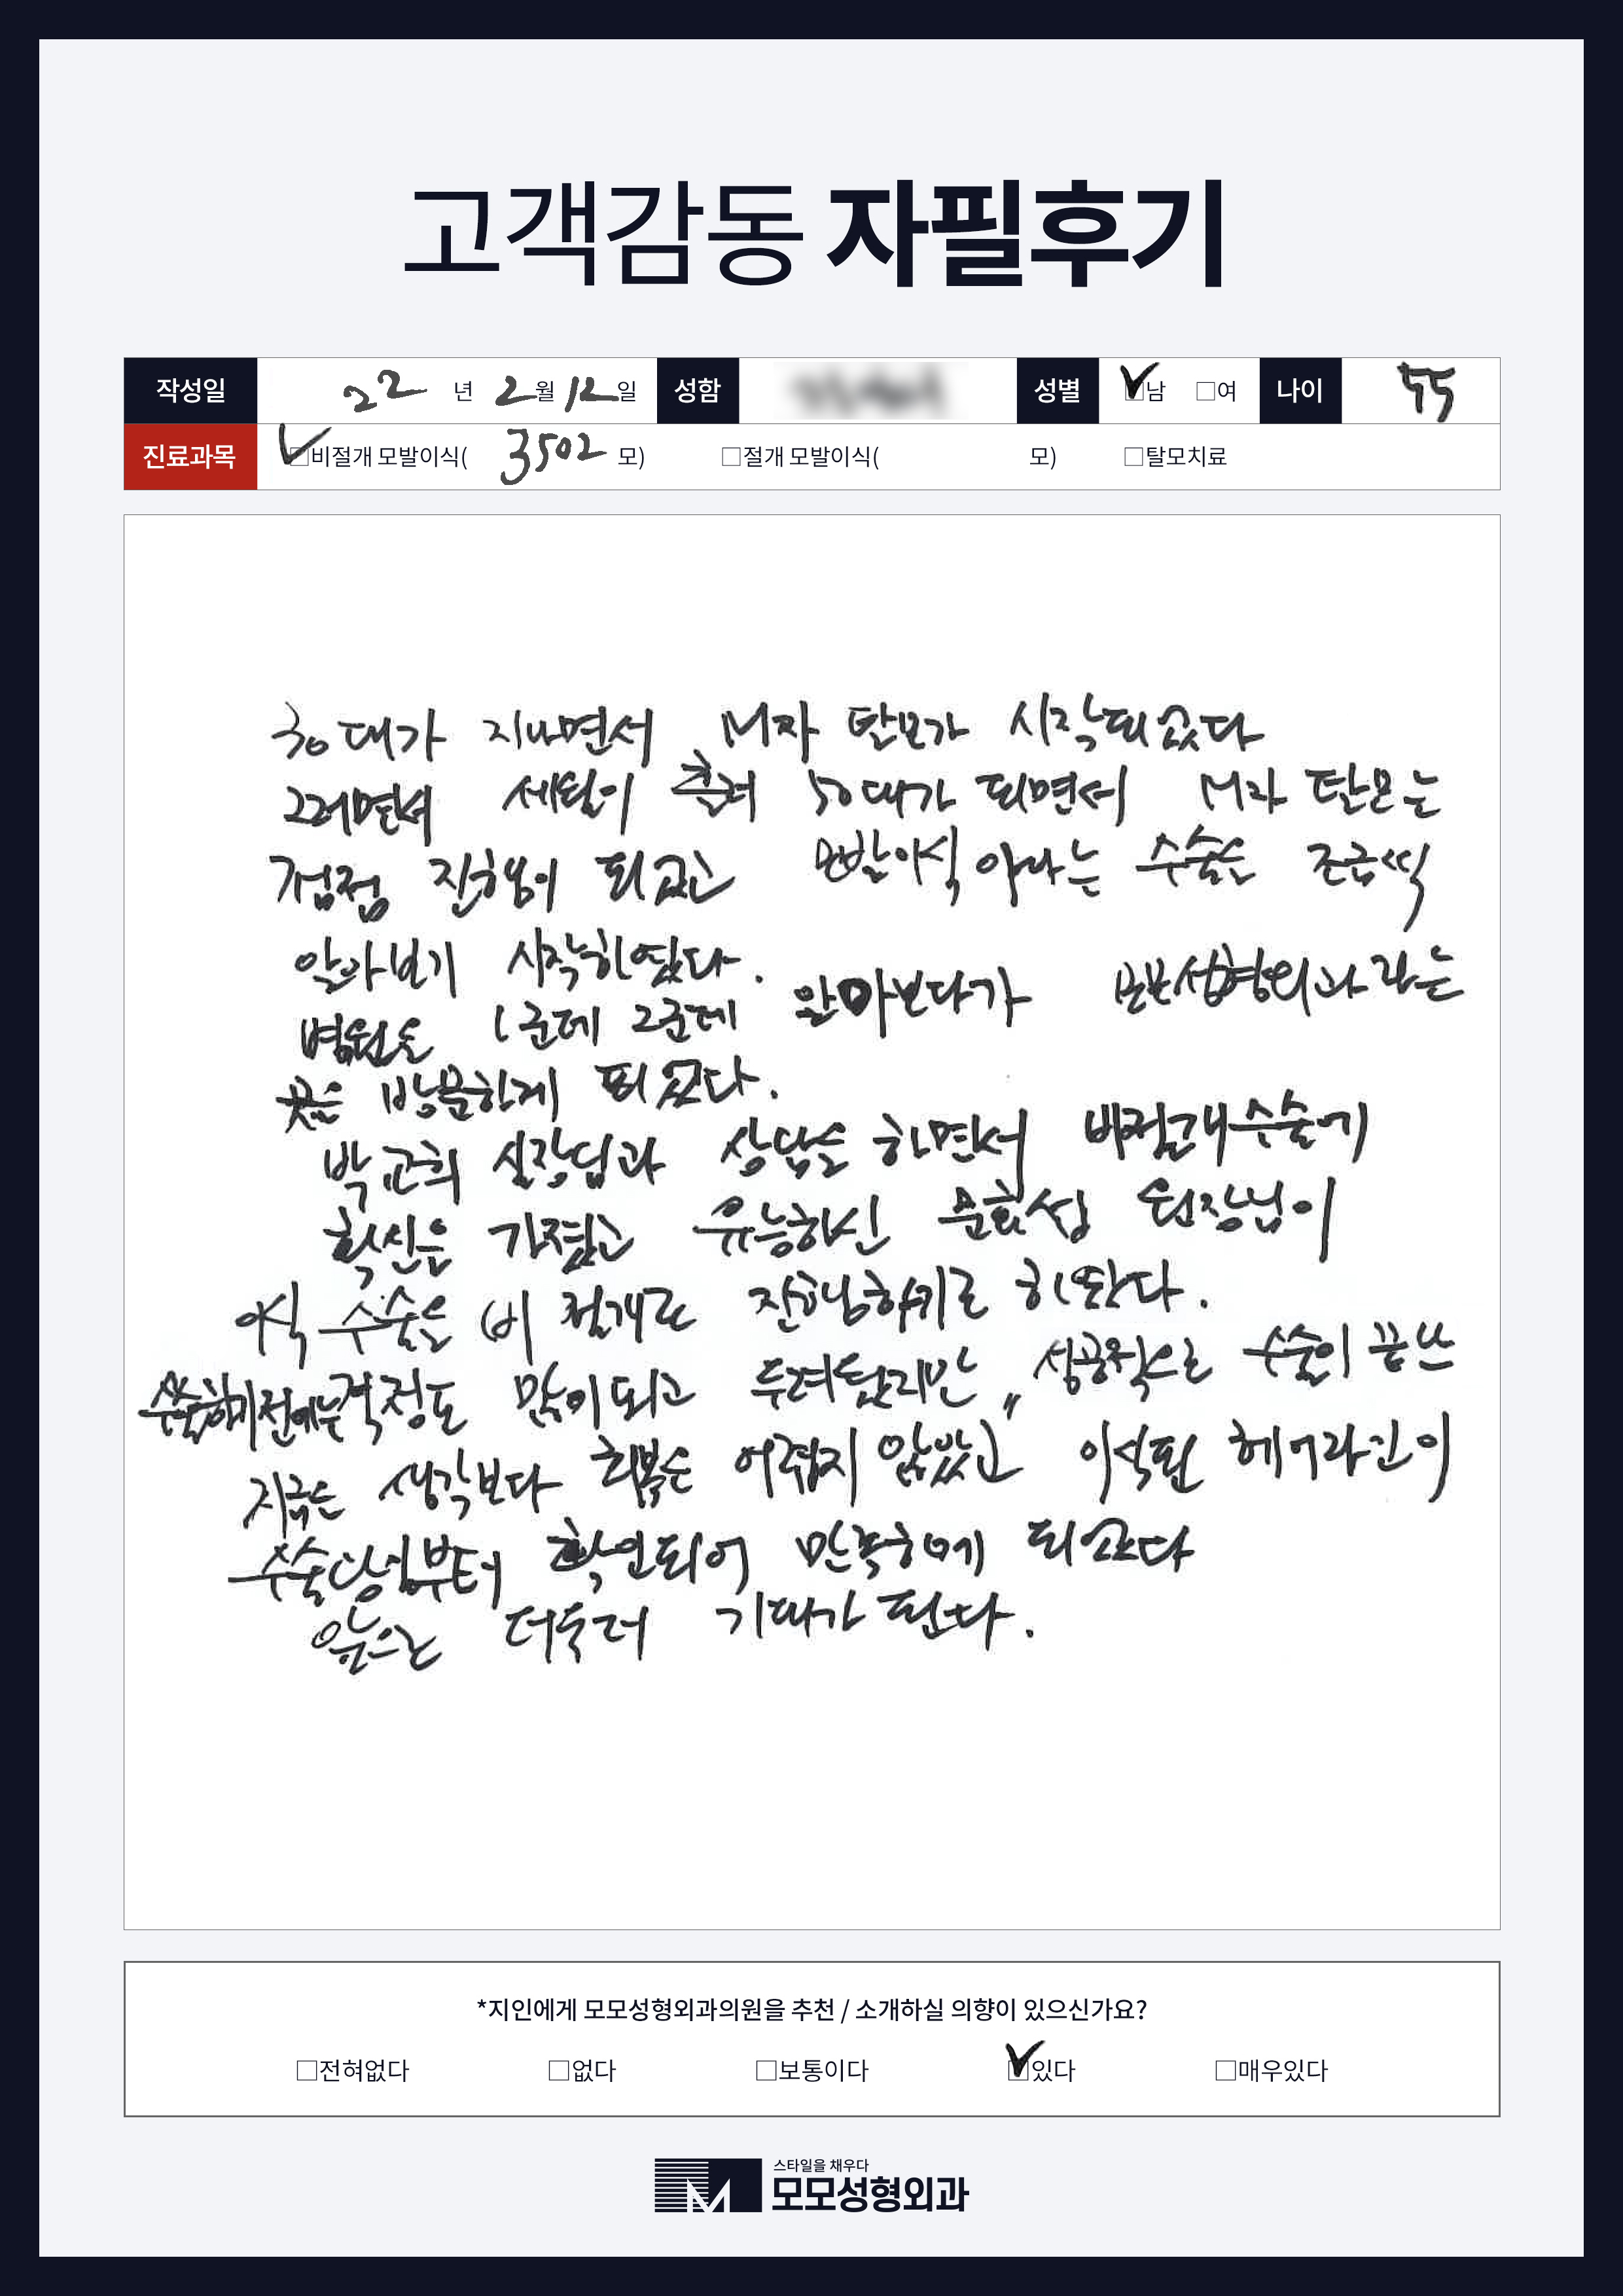 고객감동 자필후기
작성일 22 년 2 월 12 일 성함 성별 □남 □여 나이 55
진료과목 □비절개 모발이식( 3502 모) □절개 모발이식( 모) □탈모치료
30대가 지나면서 M자 탈모가 시작되었다
그러면서 세월이 흘러 50대가 되면서 M자 탈모는
점점 진행이 되었고 모발이식 이라는 수술은 조금씩
알아보기 시작하였다.
병원도 1군데 2군데 알아보다가 모모성형외과 라는
곳을 방문하게 되었다.
박교희 실장님과 상담을 하면서 비절개수술에
확신을 가졌고 유능하신 원장님이
이식 수술을 비 절개로 진행하기로 하였다.
수술하기전에는 걱정도 많이 되고 두려웠지만 " 성공적으로 수술이 끝난
지금은 생각보다 회복은 어렵지 않았고 이식된 헤어라인이
수술당일부터 확인되어 만족하게 되었다
앞으로 더욱더 기대가 된다.
*지인에게 모모성형외과의원을 추천 / 소개하실 의향이 있으신가요?
□전혀없다 □없다 □보통이다 □있다 □매우있다
스타일을 채우다
모모성형외과